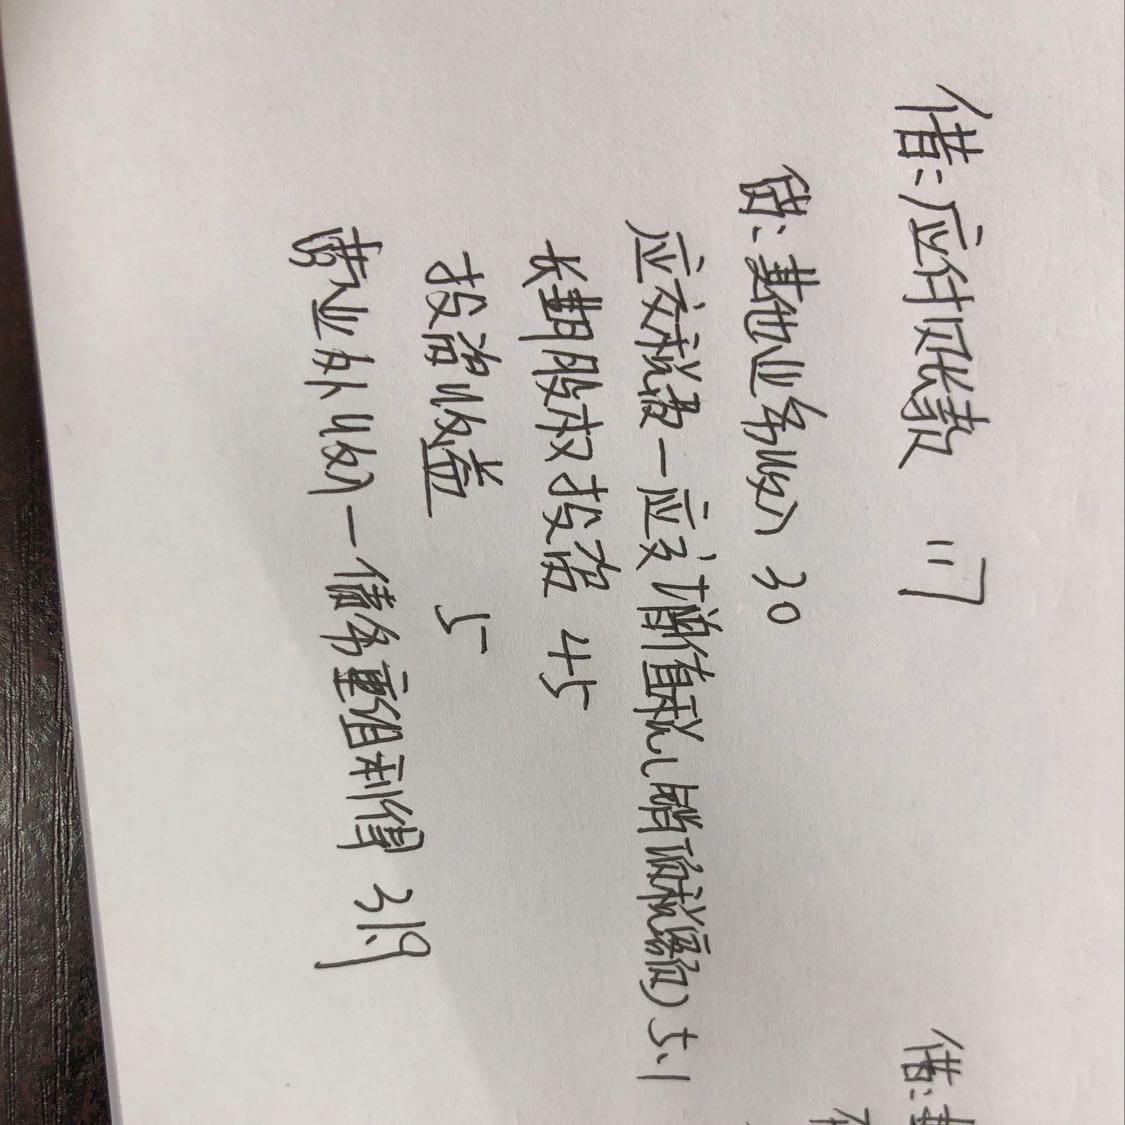 借:应付账款 117
贷:其他业务收入 30
应交税费—应交增值税(销项税额) 5.1
长期股权投资 45
投资收益 5
营业外收入—债务重组利得 31.9
借:其